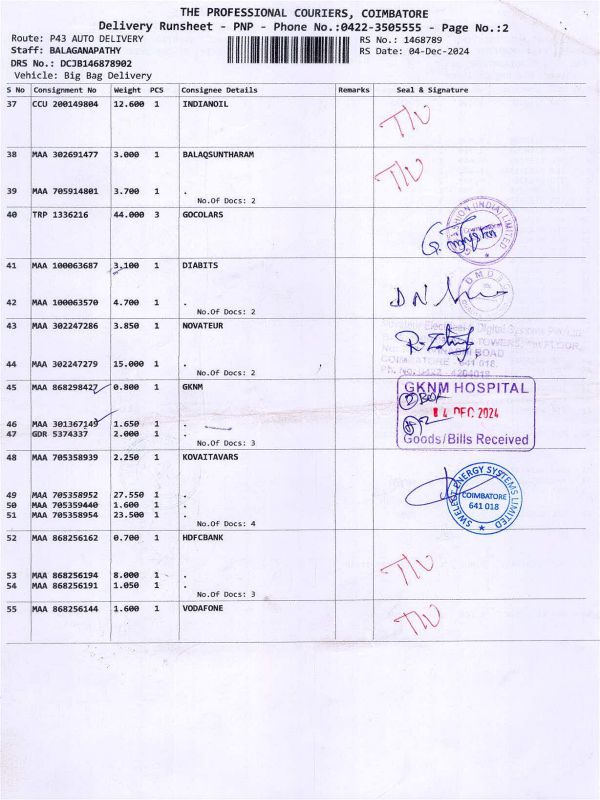 THE PROFESSIONAL COURIERS, COIMBATORE
Delivery Runsheet - PNP - Phone No.:0422-3505555 - Page No.:2
Route: P43 AUTO DELIVERY RS No.: 1468789
Staff: BALAGANAPATHY RS Date: 04-Dec-2024
DRS No.: DCJB146878902
Vehicle: Big Bag Delivery
S No Consignment No Weight PCS Consignee Details Remarks Seal & Signature
37 CCU 200149804 12.600 1 INDIANOIL
38 MAA 302691477 3.000 1 BALAQSUNTHARAM
39 MAA 705914801 3.700 1 .
No.Of Docs: 2
40 TRP 1336216 44.000 3 GOCOLARS
41 MAA 100063687 3.100 1 DIABITS
42 MAA 100063570 4.700 1 .
No.Of Docs: 2
43 MAA 302247286 3.850 1 NOVATEUR
44 MAA 302247279 15.000 1 .
No.Of Docs: 2
45 MAA 868298427 0.800 1 GKNM
GKNM HOSPITAL
04 DEC 2024
Goods/Bills Received
46 MAA 301367149 1.650 1 .
47 GDR 5374337 2.000 1 .
No.Of Docs: 3
48 KOVAITAVARS MAA 705358939 2.250 1
49 MAA 705358952 27.550 1 .
50 MAA 705359440 1.600 1 .
51 MAA 705358954 23.500 1 .
No.Of Docs: 4
SWELECT ENERGY SYSTEMS LIMITED
COIMBATORE
641 018
52 MAA 868256162 0.700 1 HDFCBANK
53 MAA 868256194 8.000 1 .
54 MAA 868256191 1.050 1 .
No.Of Docs: 3
55 MAA 868256144 1.600 1 VODAFONE